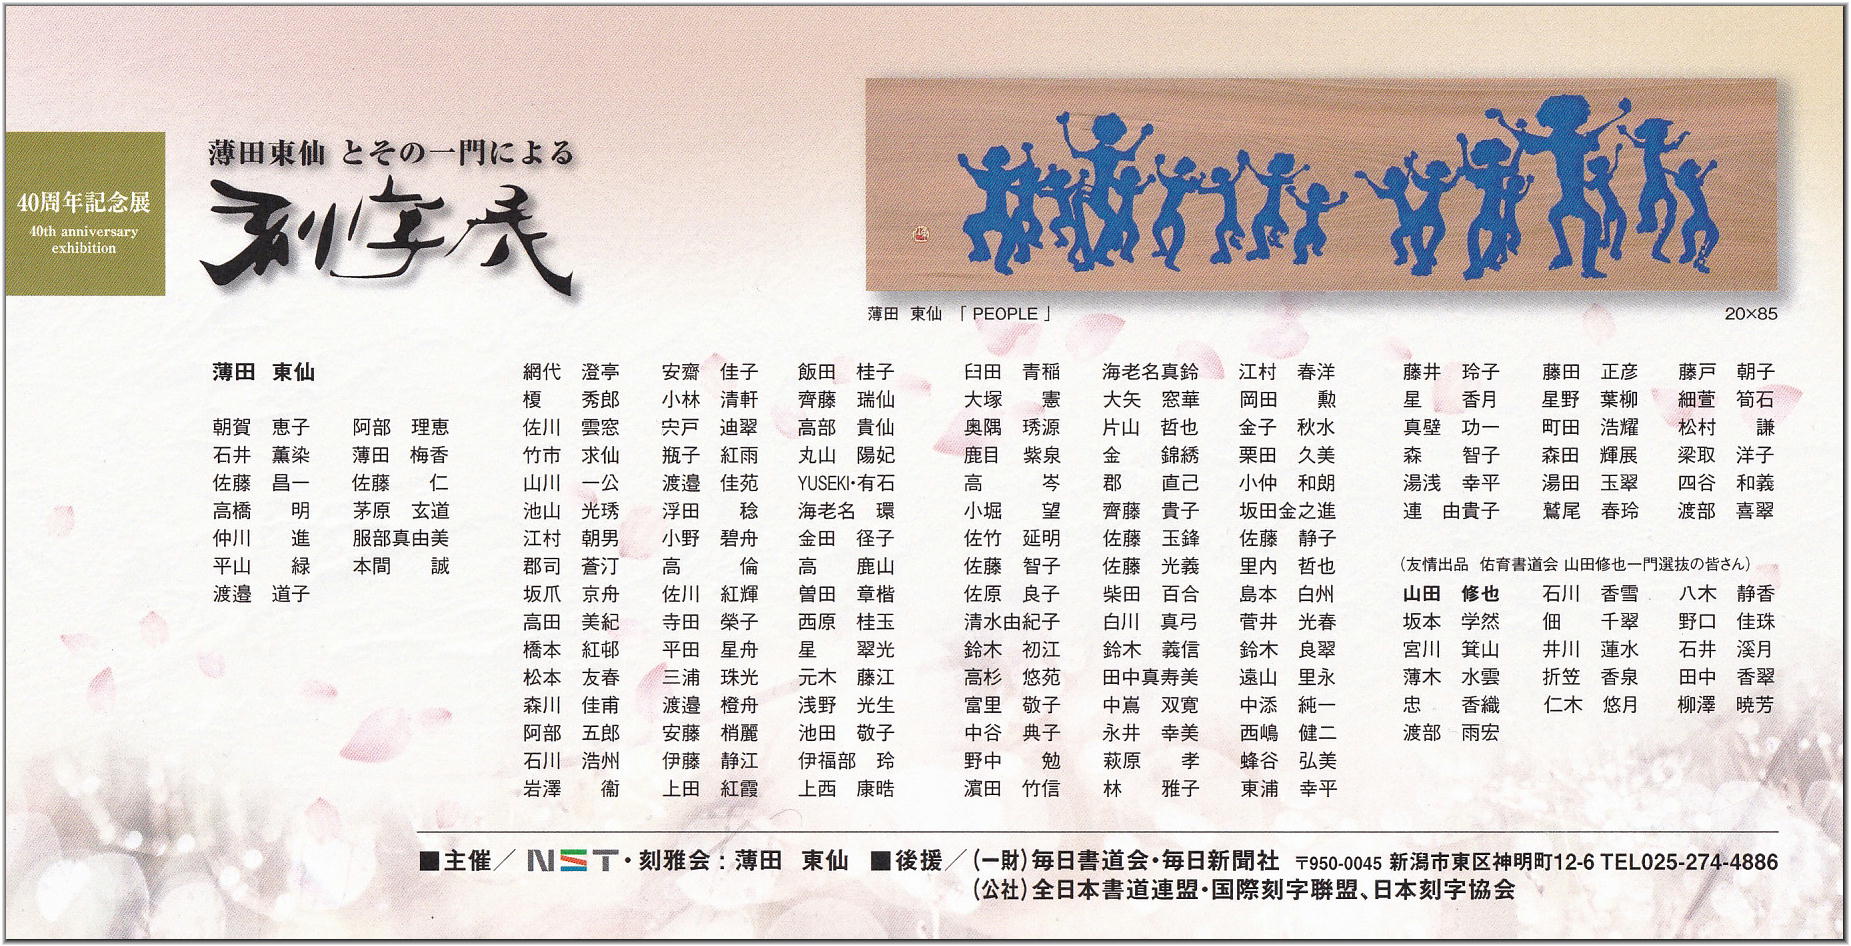 40周年記念展
40th anniversary
exhibition
薄田東仙 とその一門による
刻字展
薄田 東仙 「 PEOPLE 」 20×85
薄田 東仙
朝賀 恵子 阿部 理恵
石井 薫染 薄田 梅香
佐藤 昌一 佐藤 仁
高橋 明 茅原 玄道
仲川 進 服部真由美
平山 緑 本間 誠
渡邉 道子
網代 澄亭 安齋 佳子 飯田 桂子
榎 秀郎 小林 清軒 齊藤 瑞仙
佐川 雲窓 宍戸 迪翠 高部 貴仙
竹市 求仙 瓶子 紅雨 丸山 陽妃
山川 一公 渡邉 佳苑 YUSEKI・有石
池山 光琇 浮田 稔 海老名 環
江村 朝男 小野 碧舟 金田 径子
郡司 蒼汀 高 倫 高 鹿山
坂爪 京舟 佐川 紅輝 曽田 章楷
高田 美紀 寺田 榮子 西原 桂玉
橋本 紅邨 平田 星舟 星 翠光
松本 友春 三浦 珠光 元木 藤江
森川 佳甫 渡邉 橙舟 浅野 光生
阿部 五郎 安藤 梢麗 池田 敬子
石川 浩州 伊藤 静江 伊福部 玲
岩澤 衞 上田 紅霞 上西 康晧
臼田 青稲 海老名真鈴 江村 春洋
大塚 憲 大矢 窓華 岡田 勲
奥隅 琇源 片山 哲也 金子 秋水
鹿目 紫泉 金 錦綉 栗田 久美
高 岑 郡 直己 小仲 和朗
小堀 望 齊藤 貴子 坂田金之進
佐竹 延明 佐藤 玉鋒 佐藤 静子
佐藤 智子 佐藤 光義 里内 哲也
佐原 良子 柴田 百合 島本 白州
清水由紀子 白川 真弓 菅井 光春
鈴木 初江 鈴木 義信 鈴木 良翠
高杉 悠苑 田中真寿美 遠山 里永
富里 敬子 中嶌 双寛 中添 純一
中谷 典子 永井 幸美 西嶋 健二
野中 勉 萩原 孝 蜂谷 弘美
濵田 竹信 林 雅子 東浦 幸平
藤井 玲子 藤田 正彦 藤戸 朝子
星 香月 星野 葉柳 細萱 筍石
真壁 功一 町田 浩耀 松村 謙
森 智子 森田 輝展 梁取 洋子
湯浅 幸平 湯田 玉翠 四谷 和義
連 由貴子 鷲尾 春玲 渡部 喜翠
（友情出品 佑育書道会 山田修也一門選抜の皆さん）
山田 修也 石川 香雪 八木 静香
坂本 学然 佃 千翠 野口 佳珠
宮川 箕山 井川 蓮水 石井 溪月
薄木 水雲 折笠 香泉 田中 香翠
忠 香織 仁木 悠月 柳澤 暁芳
渡部 雨宏
■主催／ NST・刻雅会：薄田 東仙 ■後援／（一財）毎日書道会・毎日新聞社 〒950-0045 新潟市東区神明町12-6 TEL025-274-4886
（公社）全日本書道連盟・国際刻字聯盟、日本刻字協会